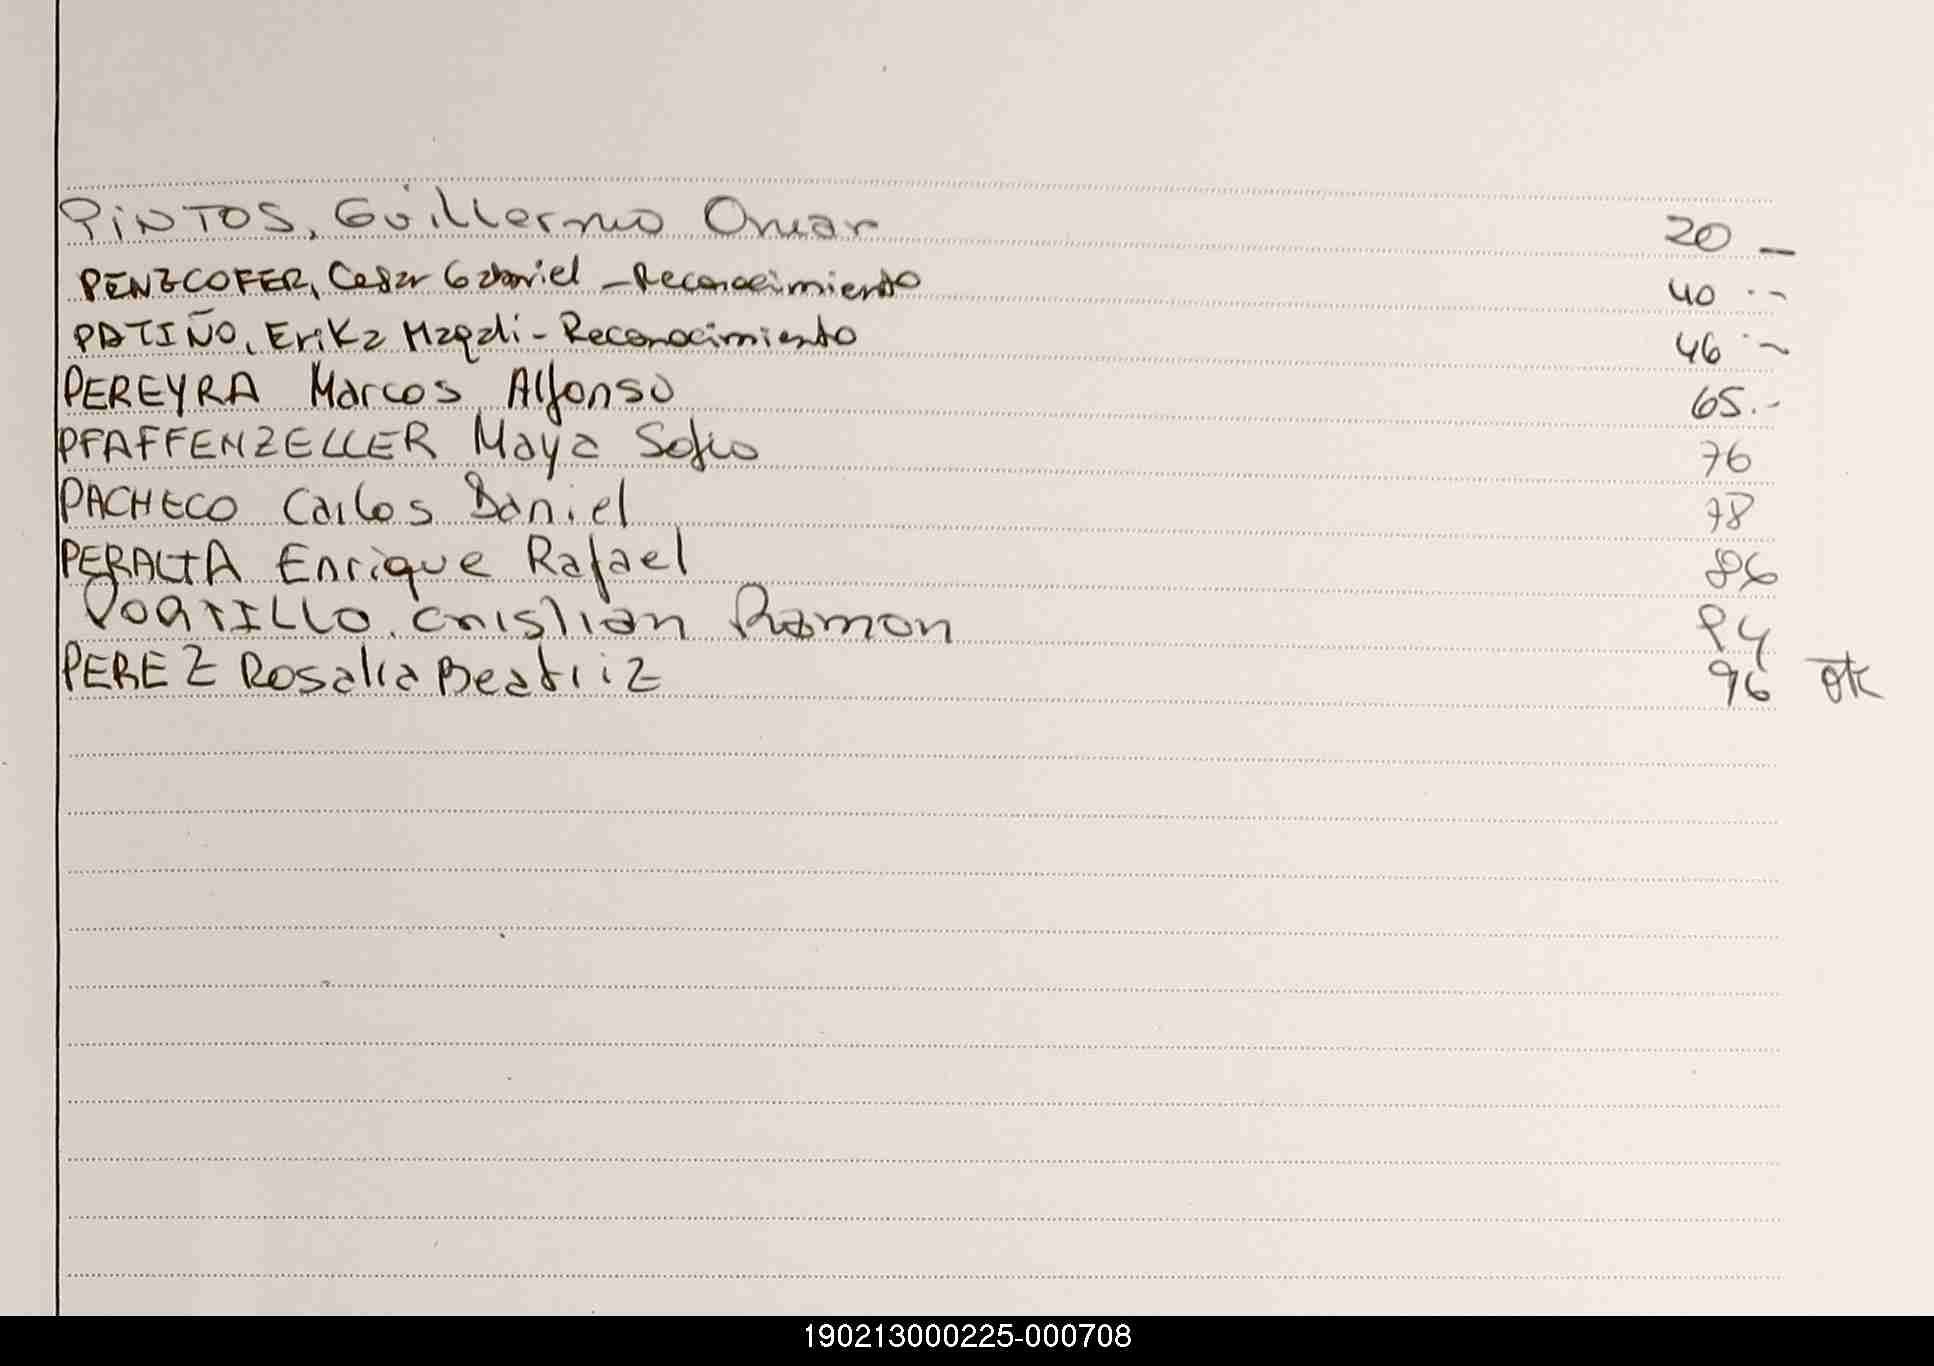 PINTOS, Guillermo Omar 20 —
PENZCOFER, Cesar Gabriel - Reconocimiento 40 . -
PATIÑO, Erika Magali - Reconocimiento 46 . -
PEREYRA Marcos Alfonso 65.-
PFAFFENZELLER Maya Sofia 76
PACHECO Carlos Daniel 78
PERALTA Enrique Rafael 86
PORTILLO, Cristian Ramon 94
PEREZ Rosalia Beatriiz 96 ok
190213000225-000708